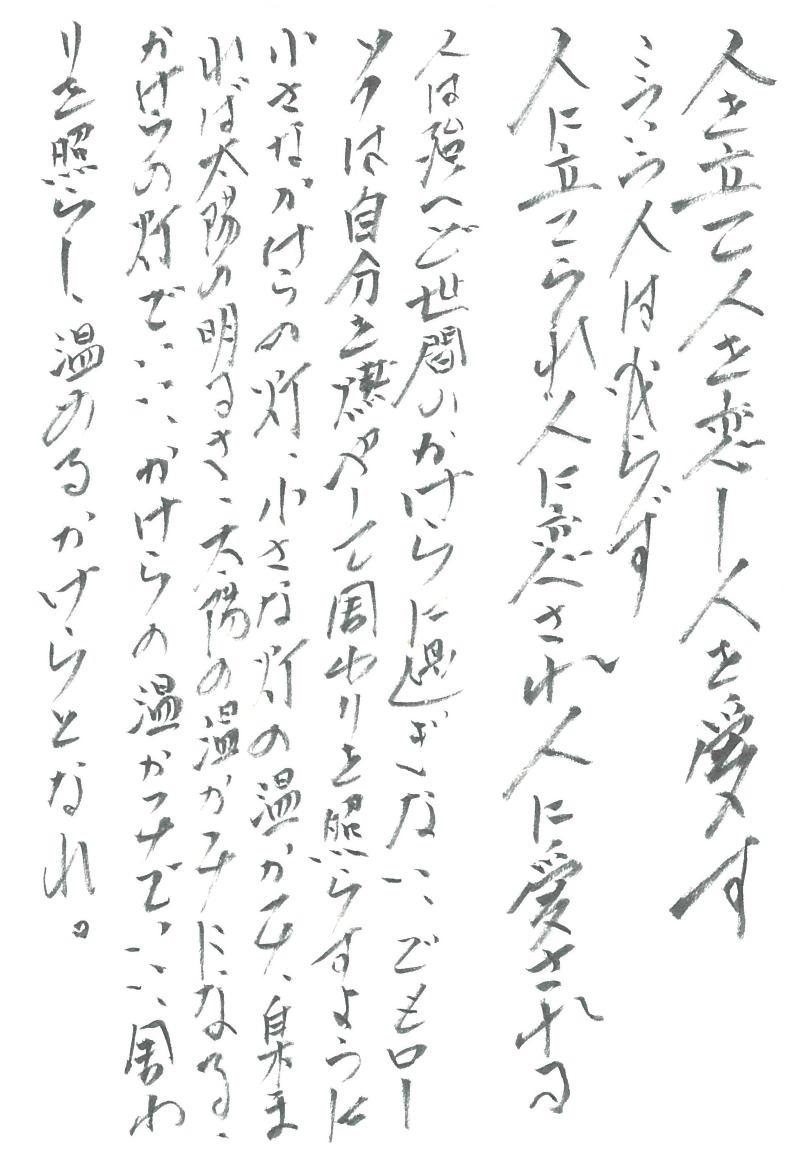 人を立て人を恋し人を愛す
こういう人は必らず
人に立てられ人に恋され人に愛される
人は殆んど世間のかけらに過ぎない、でもロー
ソクは自分を燃やして周わりを照らすように
小さなかけらの灯、小さな灯の温かみ、集ま
れば太陽の明るさ、太陽の温かみになる、
かけらの灯でいい、かけらの温かみでいい、周わ
りを照らし、温めるかけらとなれ。